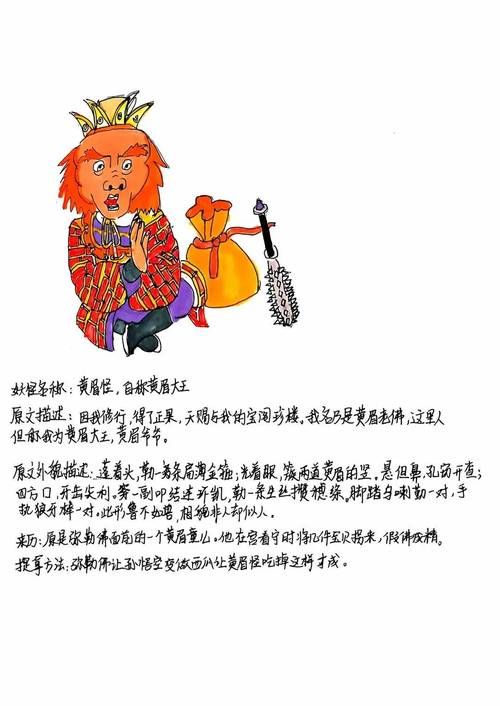 妖怪名称：黄眉怪，自称黄眉大王
原文描述：因我修行，得了正果，天赐与我的宝阁珍楼。我名乃是黄眉老佛，这里人
但称我为黄眉大王，黄眉爷爷。
原文外貌描述：蓬着头，勒一条扁薄金箍；光着眼，簇两道黄眉的竖。悬胆鼻，孔窍开查；
四方口，牙齿尖利。穿一副叩结连环铠，勒一条生丝攒穗绦。脚踏乌喇鞋一对，手
执狼牙棒一对。此形象不如兽，相貌非人却似人。
来历：原是弥勒佛面前的一个黄眉童儿。他在宫看守时将几件宝贝拐来，假佛成精。
捉拿方法：弥勒佛让孙悟空变做西瓜让黄眉怪吃掉这样才成。